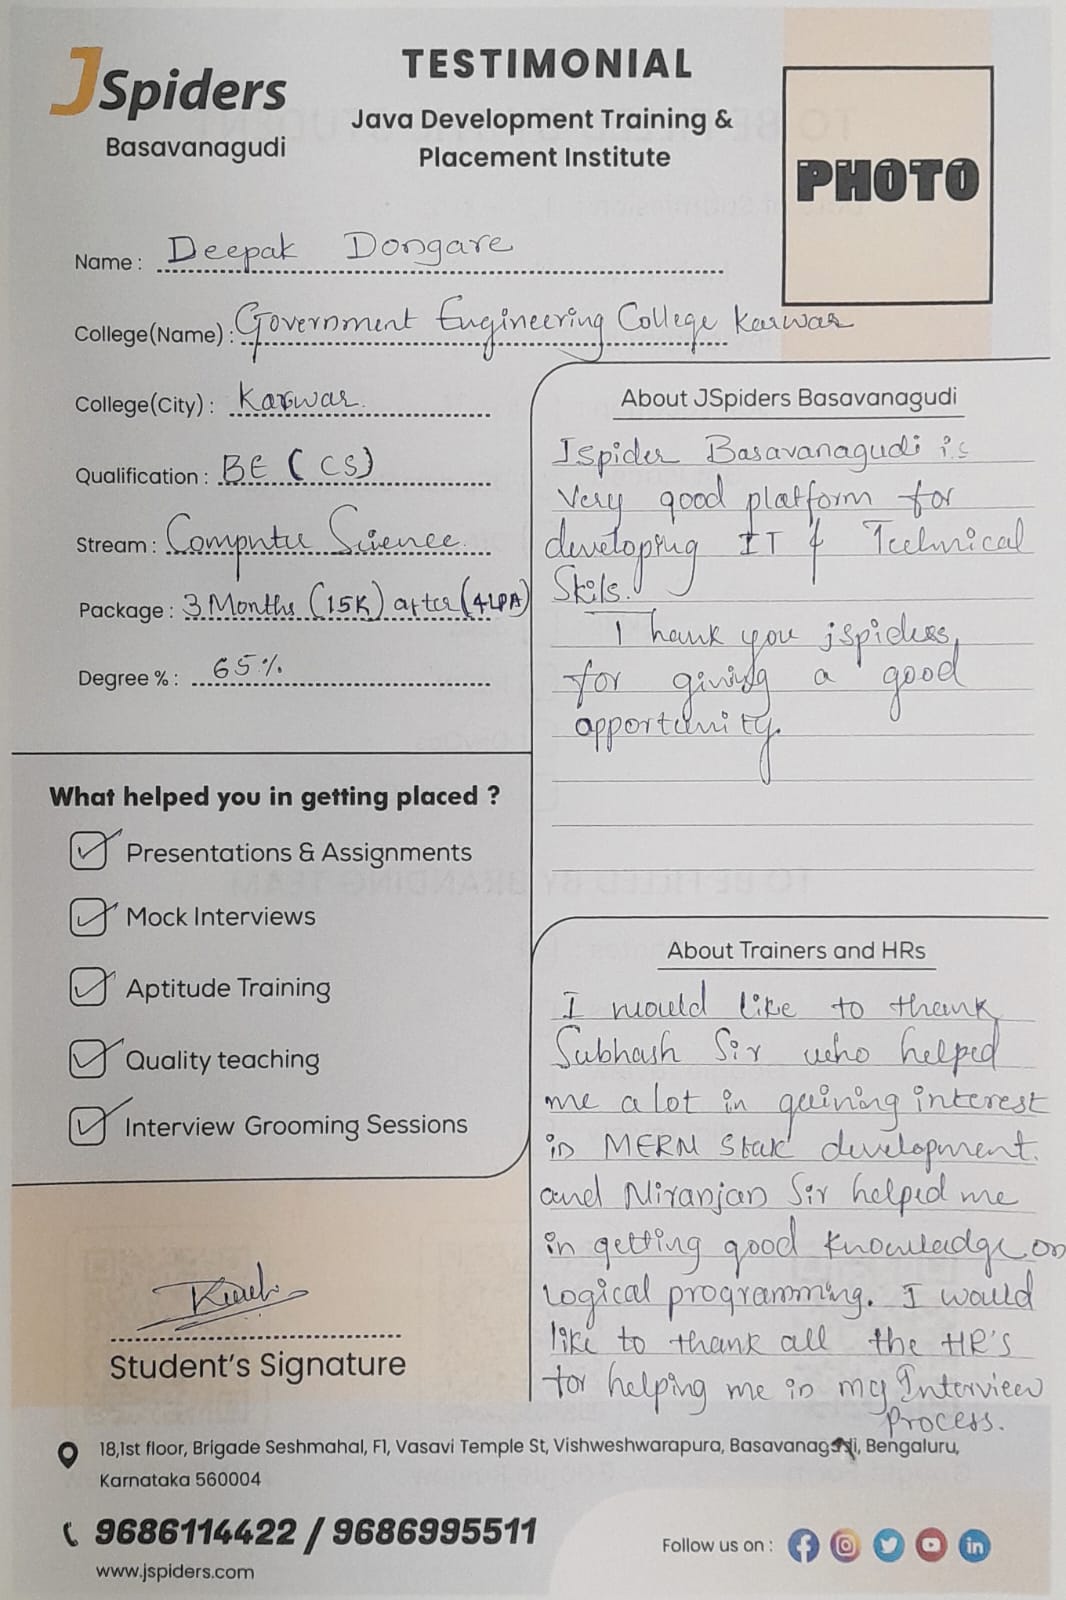 JSpiders
Basavanagudi
TESTIMONIAL
Java Development Training &
Placement Institute
PHOTO
Name : Deepak Dongare
College(Name) : Government Engineering College Karwar
College(City) : Karwar
Qualification : BE (CS)
Stream : Computer Science
Package : 3 Months (15K) after (4LPA)
Degree % : 65%
What helped you in getting placed ?
Presentations & Assignments
Mock Interviews
Aptitude Training
Quality teaching
Interview Grooming Sessions
Student's Signature
About JSpiders Basavanagudi
Jspider Basavanagudi is
Very good platform for
developing IT & Technical
Skils.
Thank you jspiders
for giving a good
opportunity.
About Trainers and HRs
I would like to thank
Subhash Sir who helped
me a lot in gaining interest
in MERN Stak development.
and Niranjan Sir helped me
in getting good knowladge on
logical programming. I would
like to thank all the HR's
for helping me in my Interview
process.
18,1st floor, Brigade Seshmahal, F1, Vasavi Temple St, Vishweshwarapura, Basavanagudi, Bengaluru,
Karnataka 560004
9686114422 / 9686995511
www.jspiders.com
Follow us on :